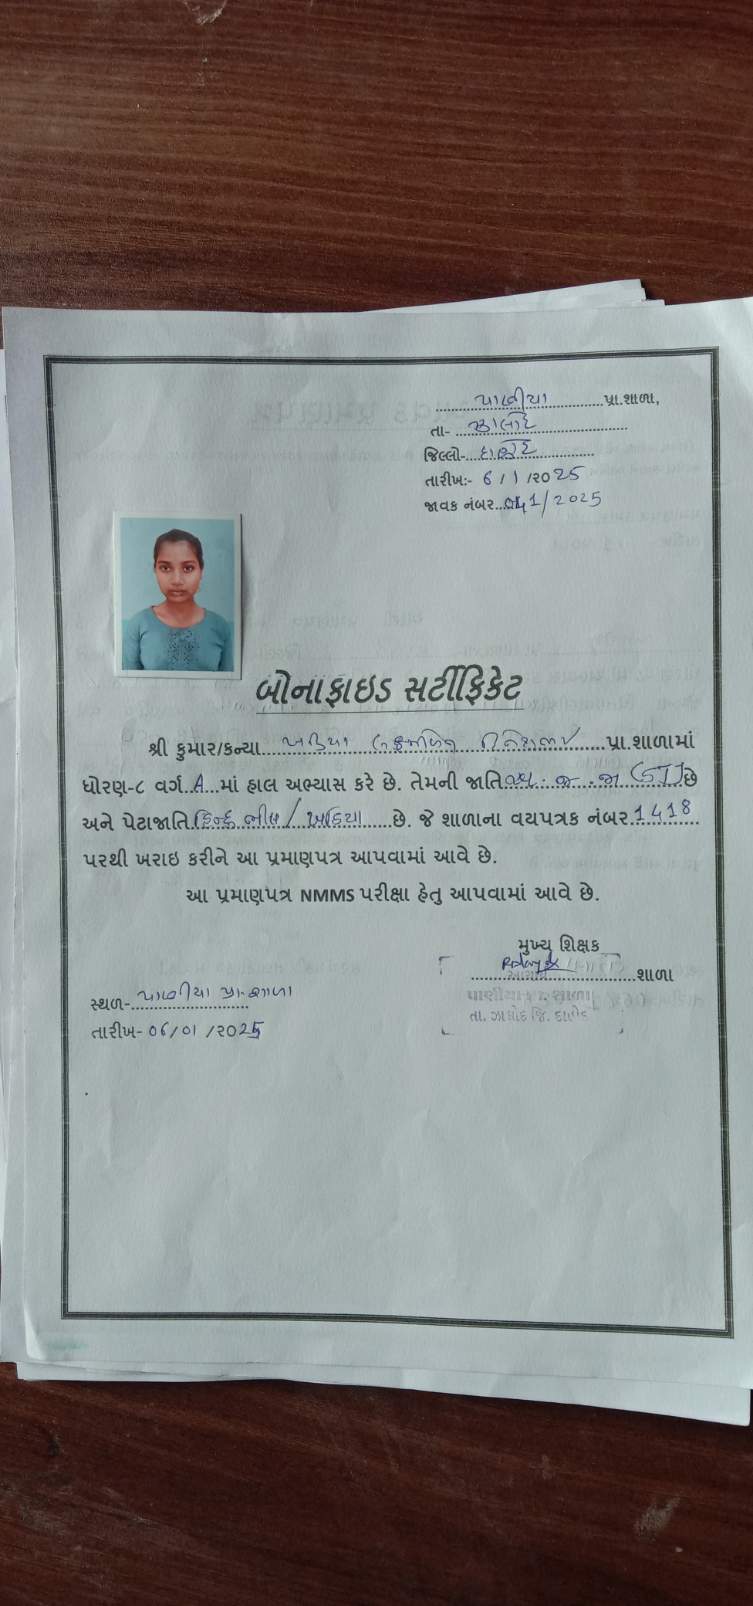 પાણીયા પ્રા.શાળા,
તા- ઝાલોદ
જિલ્લો- દાહોદ
તારીખ:- 6 / 1 /૨૦25
જાવક નંબર... 41/2025
બોનાફાઇડ સર્ટીફિકેટ
શ્રી કુમાર/કન્યા ખડિયા પ્રા.શાળામાં
ધોરણ-૮ વર્ગ..A...માં હાલ અભ્યાસ કરે છે. તેમની જાતિ અ.જ.જા (ST) છે
અને પેટાજાતિ હિન્દુ ભીલ / ખડિયા છે. જે શાળાના વયપત્રક નંબર 1418
પરથી ખરાઇ કરીને આ પ્રમાણપત્ર આપવામાં આવે છે.
આ પ્રમાણપત્ર NMMS પરીક્ષા હેતુ આપવામાં આવે છે.
મુખ્ય શિક્ષક
શાળા
પાણીયા પ્રા. શાળા
તા. ઝાલોદ જિ. દાહોદ
સ્થળ- પાણીયા પ્રા-શાળા
તારીખ- 06/01 /૨૦25